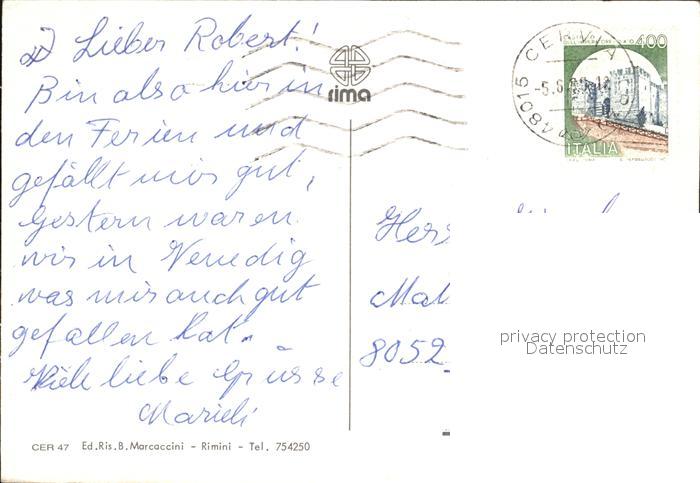 Lieber Robert!
Bin also hier in
den Ferien und
gefällt mir gut,
Gestern waren
wir in Venedig
was mir auch gut
gefallen hat.
Viele liebe Grüsse
Marieli
rima
400
48015 CERVIA
ITALIA
Herr
8052
privacy protection
Datenschutz
CER 47 Ed.Ris.B.Marcaccini - Rimini - Tel. 754250